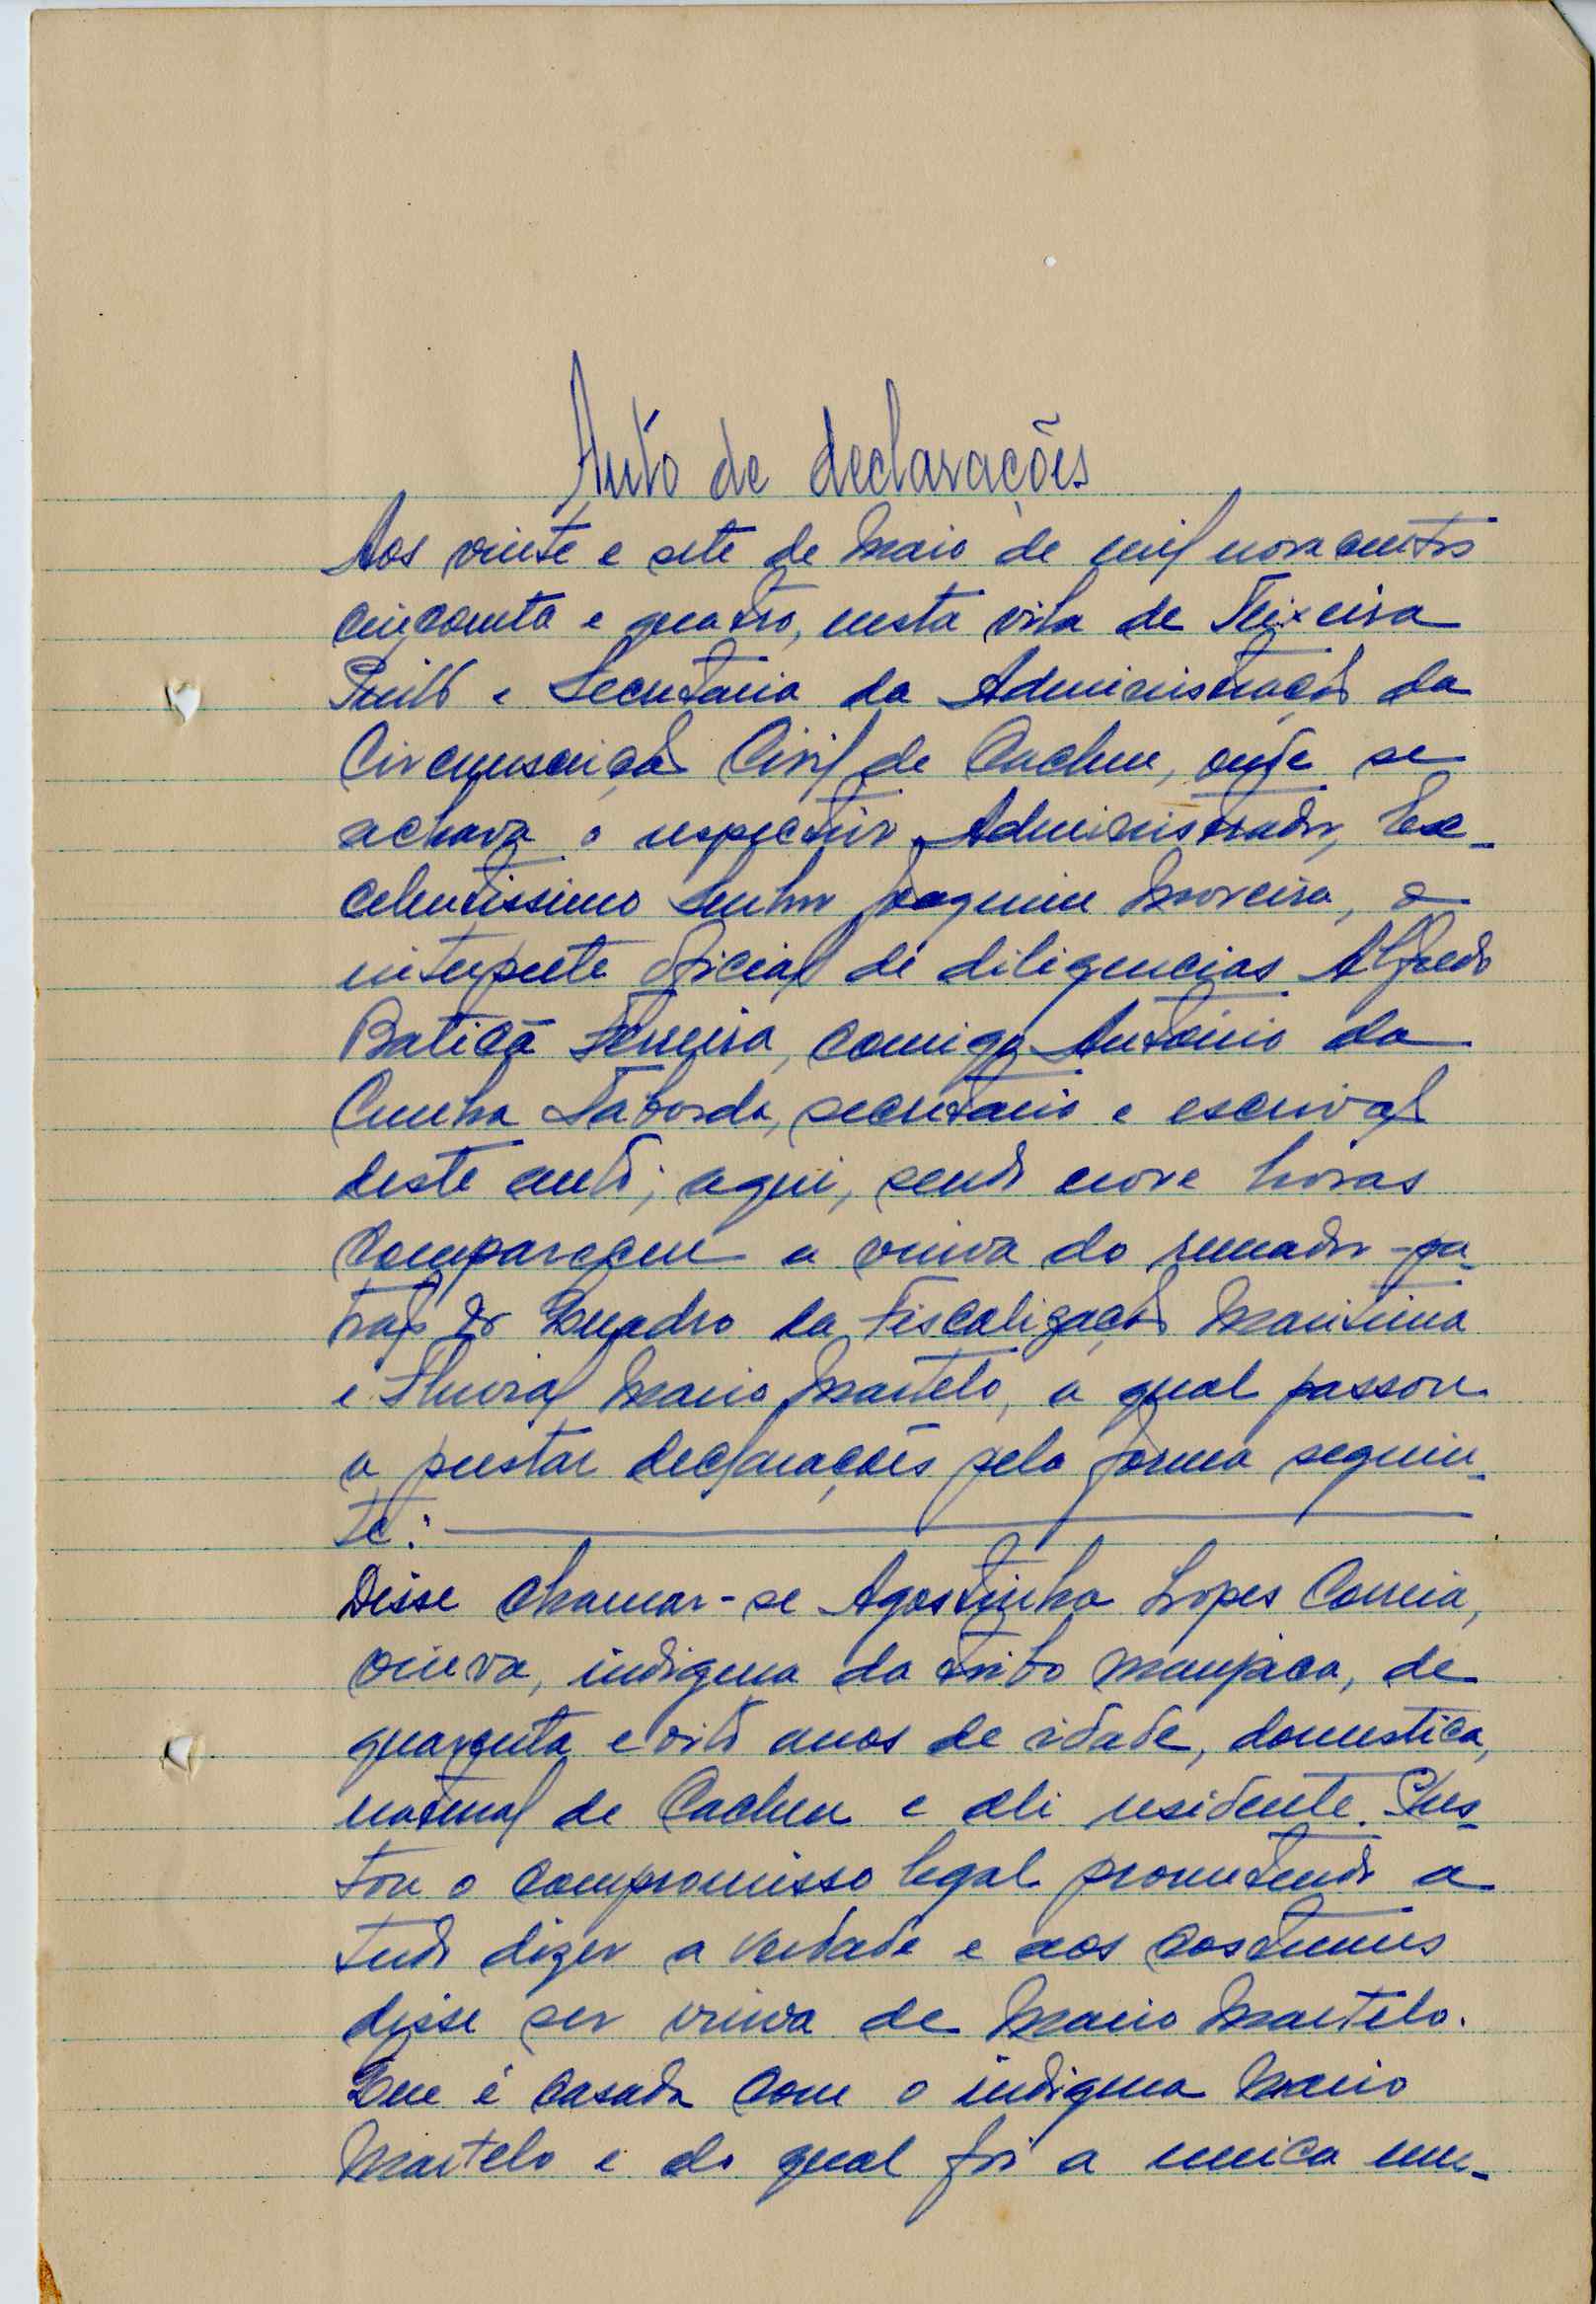 Auto de declarações
Aos vinte e sete de Maio de mil novecentos
cinconta e quatro, nesta vila de Teixeira
Pinto e Secretaria da Administração da
Circunscrição Civil de Cacheu, onde se
achava o respectivo Administrador, Ex-
celentissimo Senhor Joaquim Moreira, o
interprete oficial de diligencias Alfredo
Baticã Ferreira, comigo António da
Cunha Taborda, secretario e escrivão
deste auto; aqui, sendo nove horas
compareceu a viuva do remador-pa-
trão do Quadro da Fiscalização Maritima
e Fluvial Mario Martelo, a qual passou
a prestar declarações pela forma seguin-
te:
Disse chamar-se Agostinha Lopes Correia,
viuva, indigena da tribo manjaca, de
quarenta e oito anos de idade, domestica,
natural de Cacheu e ali residente. Pres-
tou o compromisso legal prometendo a
tudo dizer a verdade e aos costumes
disse ser viuva de Mario Martelo.
Que é casada com o indigena Mario
Martelo e do qual foi a unica mu-